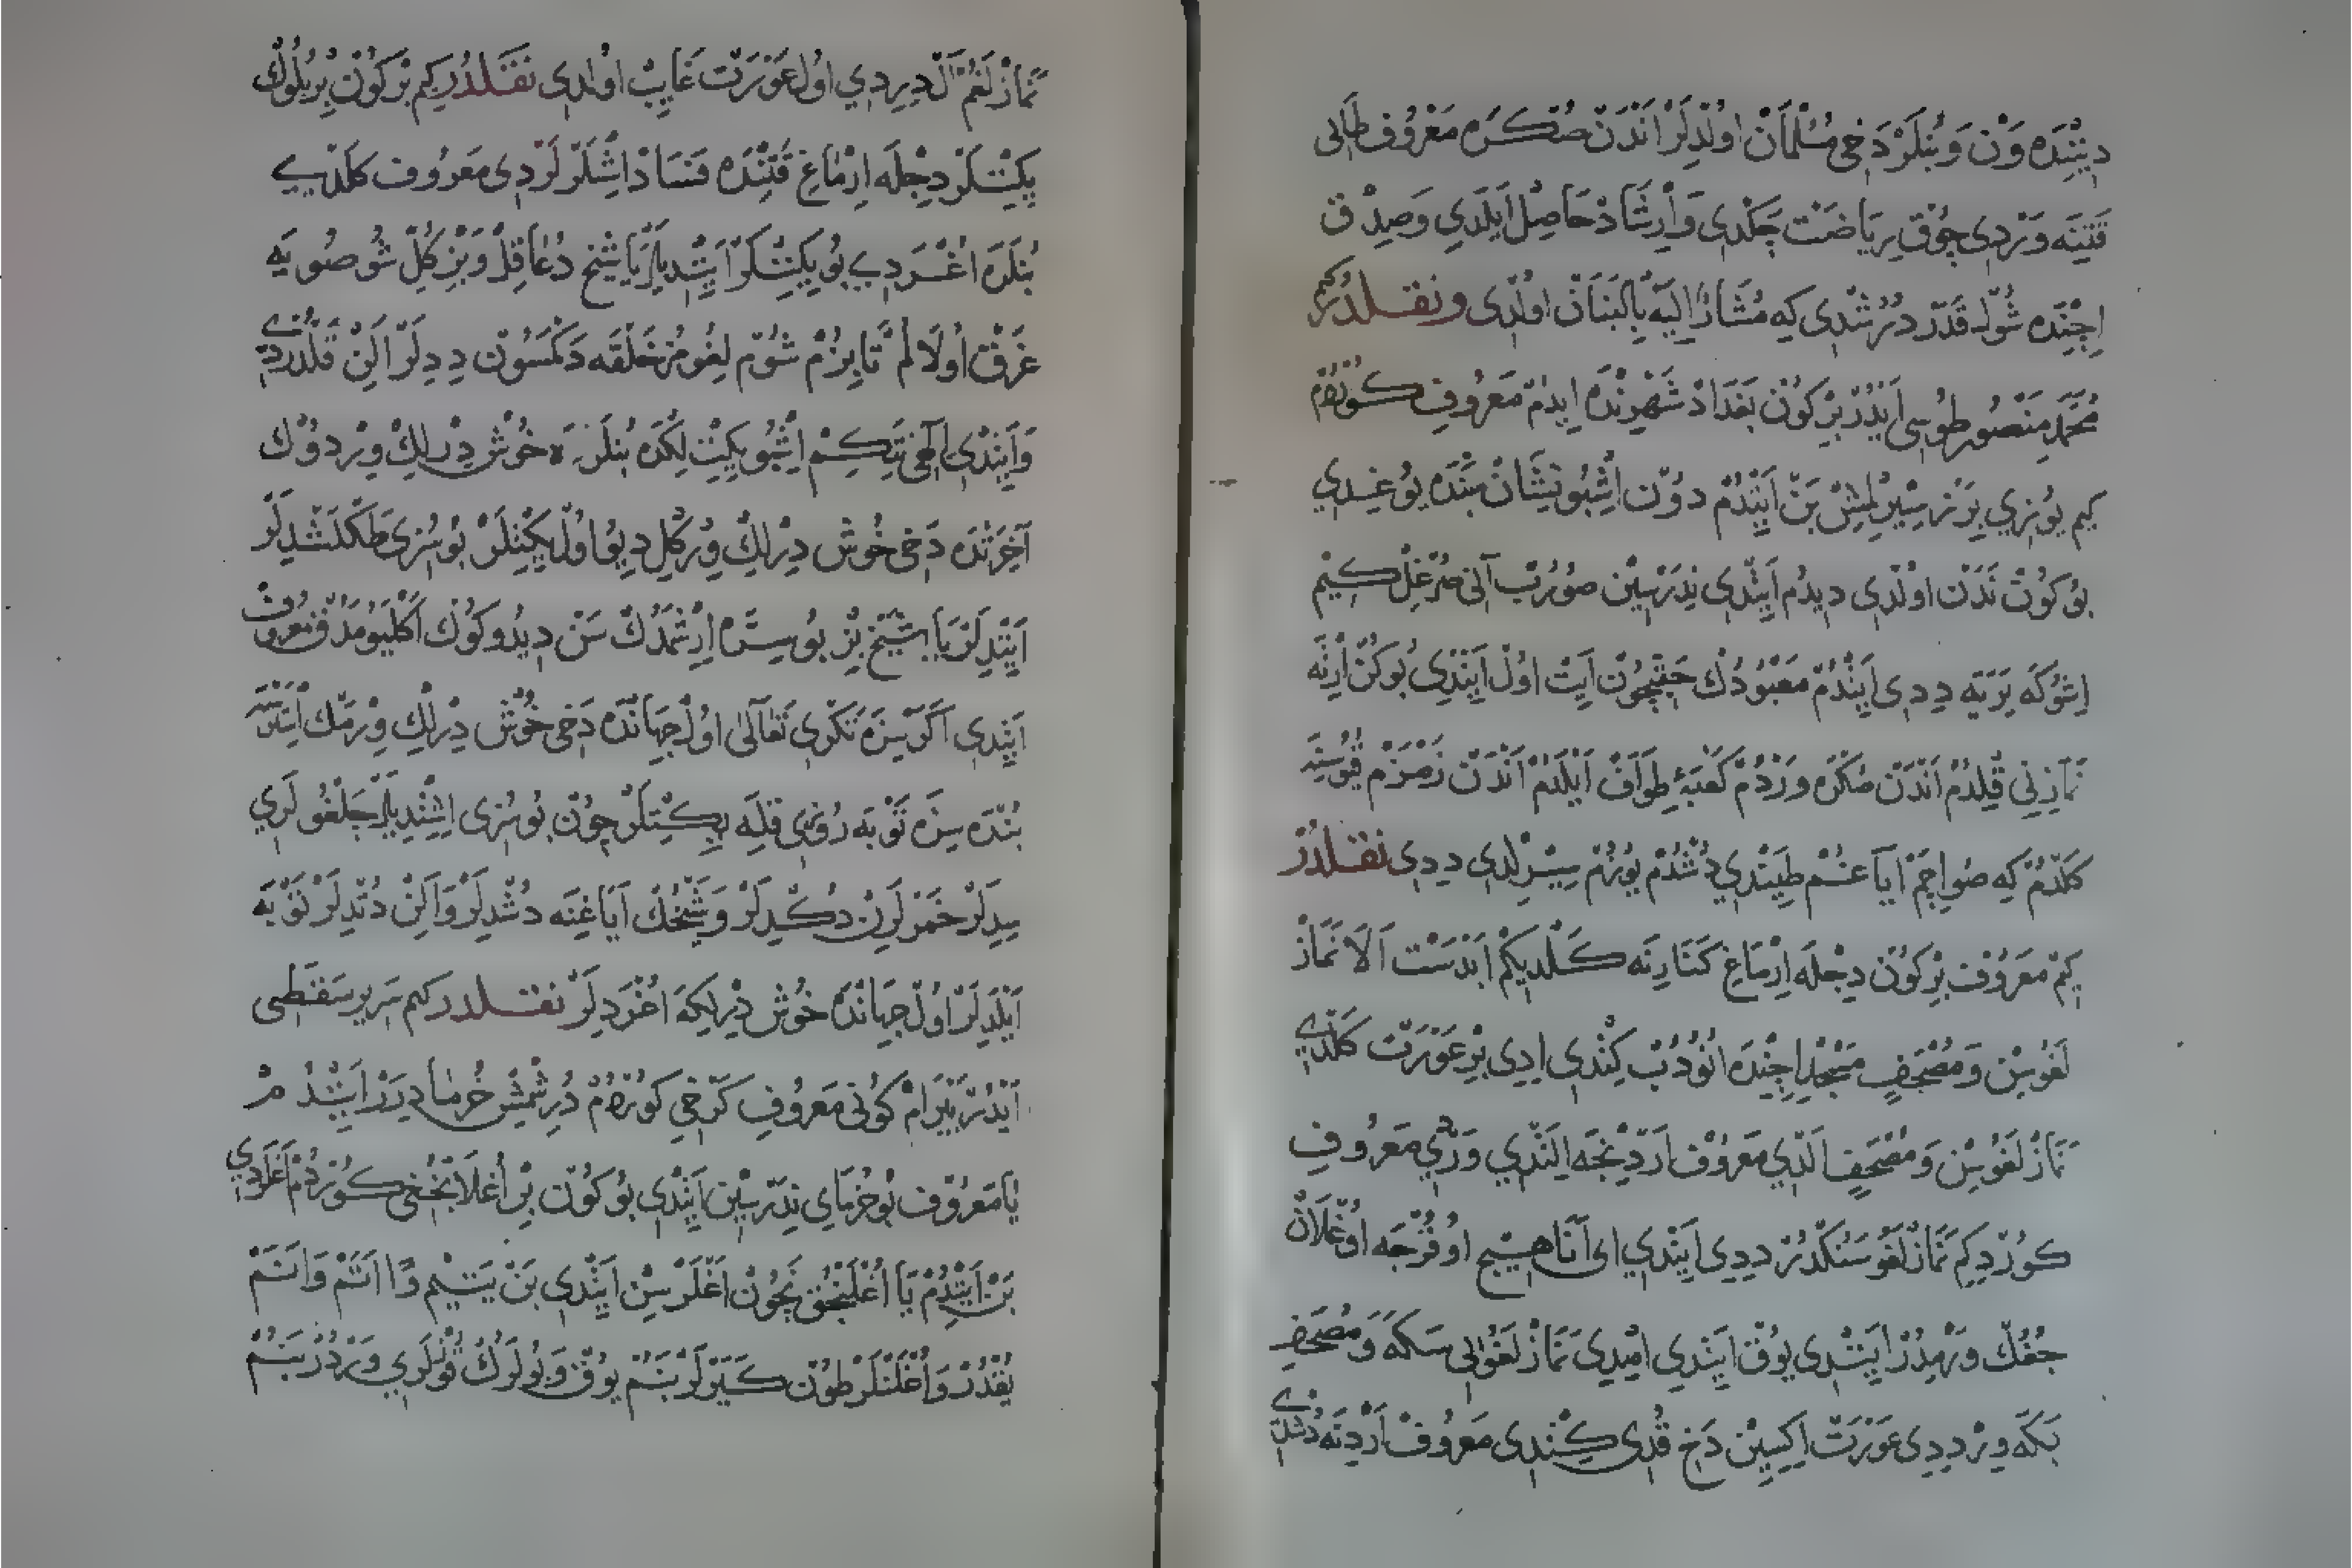 دیننده ون وبنلر دخی مسلمان اولدلر اندن صکره معروف طای
قتینه وردی چوق ریاضت چکدی وارشاد حاصل ایلدی وصدق
اچنده شوله قدر درشدی که مشار الیه بالبنان اولدی ونقلدر کم
محمد منصور طوسی ایدر بر کون بغداد شهرنده ایدم معروف کوردم
کیم یوزی یرر سیرلمش بن ایتدم دون اشبو نشان سنده یوغدی
بو کون ندن اولدی دیدم ایتدی ندرسین صورب آنی صرغل کیم
اشوکه یریه ددی ایتدم معبودك حقیچون ایت اول ایتدی بوکن ارته
نمازنی قلدم اندن صکره وردم کعبه طواف ایلدم اندن زمزم قیوسنه
کلدم که صو ایچم ایاغم طیندی دشدم یوزم سیرلدی ددی نقلدر
کم معروف بر کون دجله ارماغ کنارنه کلدیکم ابدست الا نماز
لغوسن ومصحف مسجد اچنده انودب کتدی ادی بر عورت کلدی
نماز لغوسن ومصحف الدی معروف اردنجه الندی وردی معروف
کوردکم نمازلغو سنکدر ددی ایتدی ای انا هیچ اوقرجه اوغلان
جغك ورمدر ایتدی یوق ایتدی امیدی نماز لغوالی سکه ومصحف
بکه ویر ددی عورت اکیسین دخ قدی کتدی معروف اردنه دشدی
نماز لغم آل دردی اول عورت غایب اولدی نقلدر کیم بر کون بر بلوك
یکتلر دجله ارماغ قتنده فساد اشلرلردی معروف کلدی
بنلره اغردی بو یکتلر ایتدیلر یا شیخ دعا قل وبز کل شو صویه
غرق اولالم تا بزم شوم لغومز خلقه دکمسون ددلر الن قلدردی
وایتدی الهی نتکم اشبو یکیت لکده بنلره خوش درلك ویردوك
آخرتده دخی خوش درلك ویرکل دیو اول یکتلر بو سزی طکلشدلر
ایتدلر یا شیخ بز بو سره ارشمدك سن دیدوکوك اکلیومدق معروف
ایتدی اکر سزه تکری تعالی اول جهانده دخی خوش درلك ویرمك استرسه
بنده سزه توبه روزی قله یکتلر چون بو سزی اشتدیلر چلغولری
سدلر خمرلرن دکدلر وشیخك ایاغنه دشدلر والن دتدلر توبه
ایلدلر اول جهانده خوش درلکه اغردلر نقلدر کم سری سقطی
ایدر بیرام کونی معروف کرخی کوردم درشمش خرما دیرر ایتدم
یا معروف بو خرمای ندرسین ایتدی بو کون بر اغلانجخی کوردم اغلردی
بن ایتدم یا اغلنجق نچون اغلرسن ایتدی بن یتیم وا اتم وانم
یقدر واغلنلر طون کیرلر بنم یوق وبولرك قوزلری وردر بنم